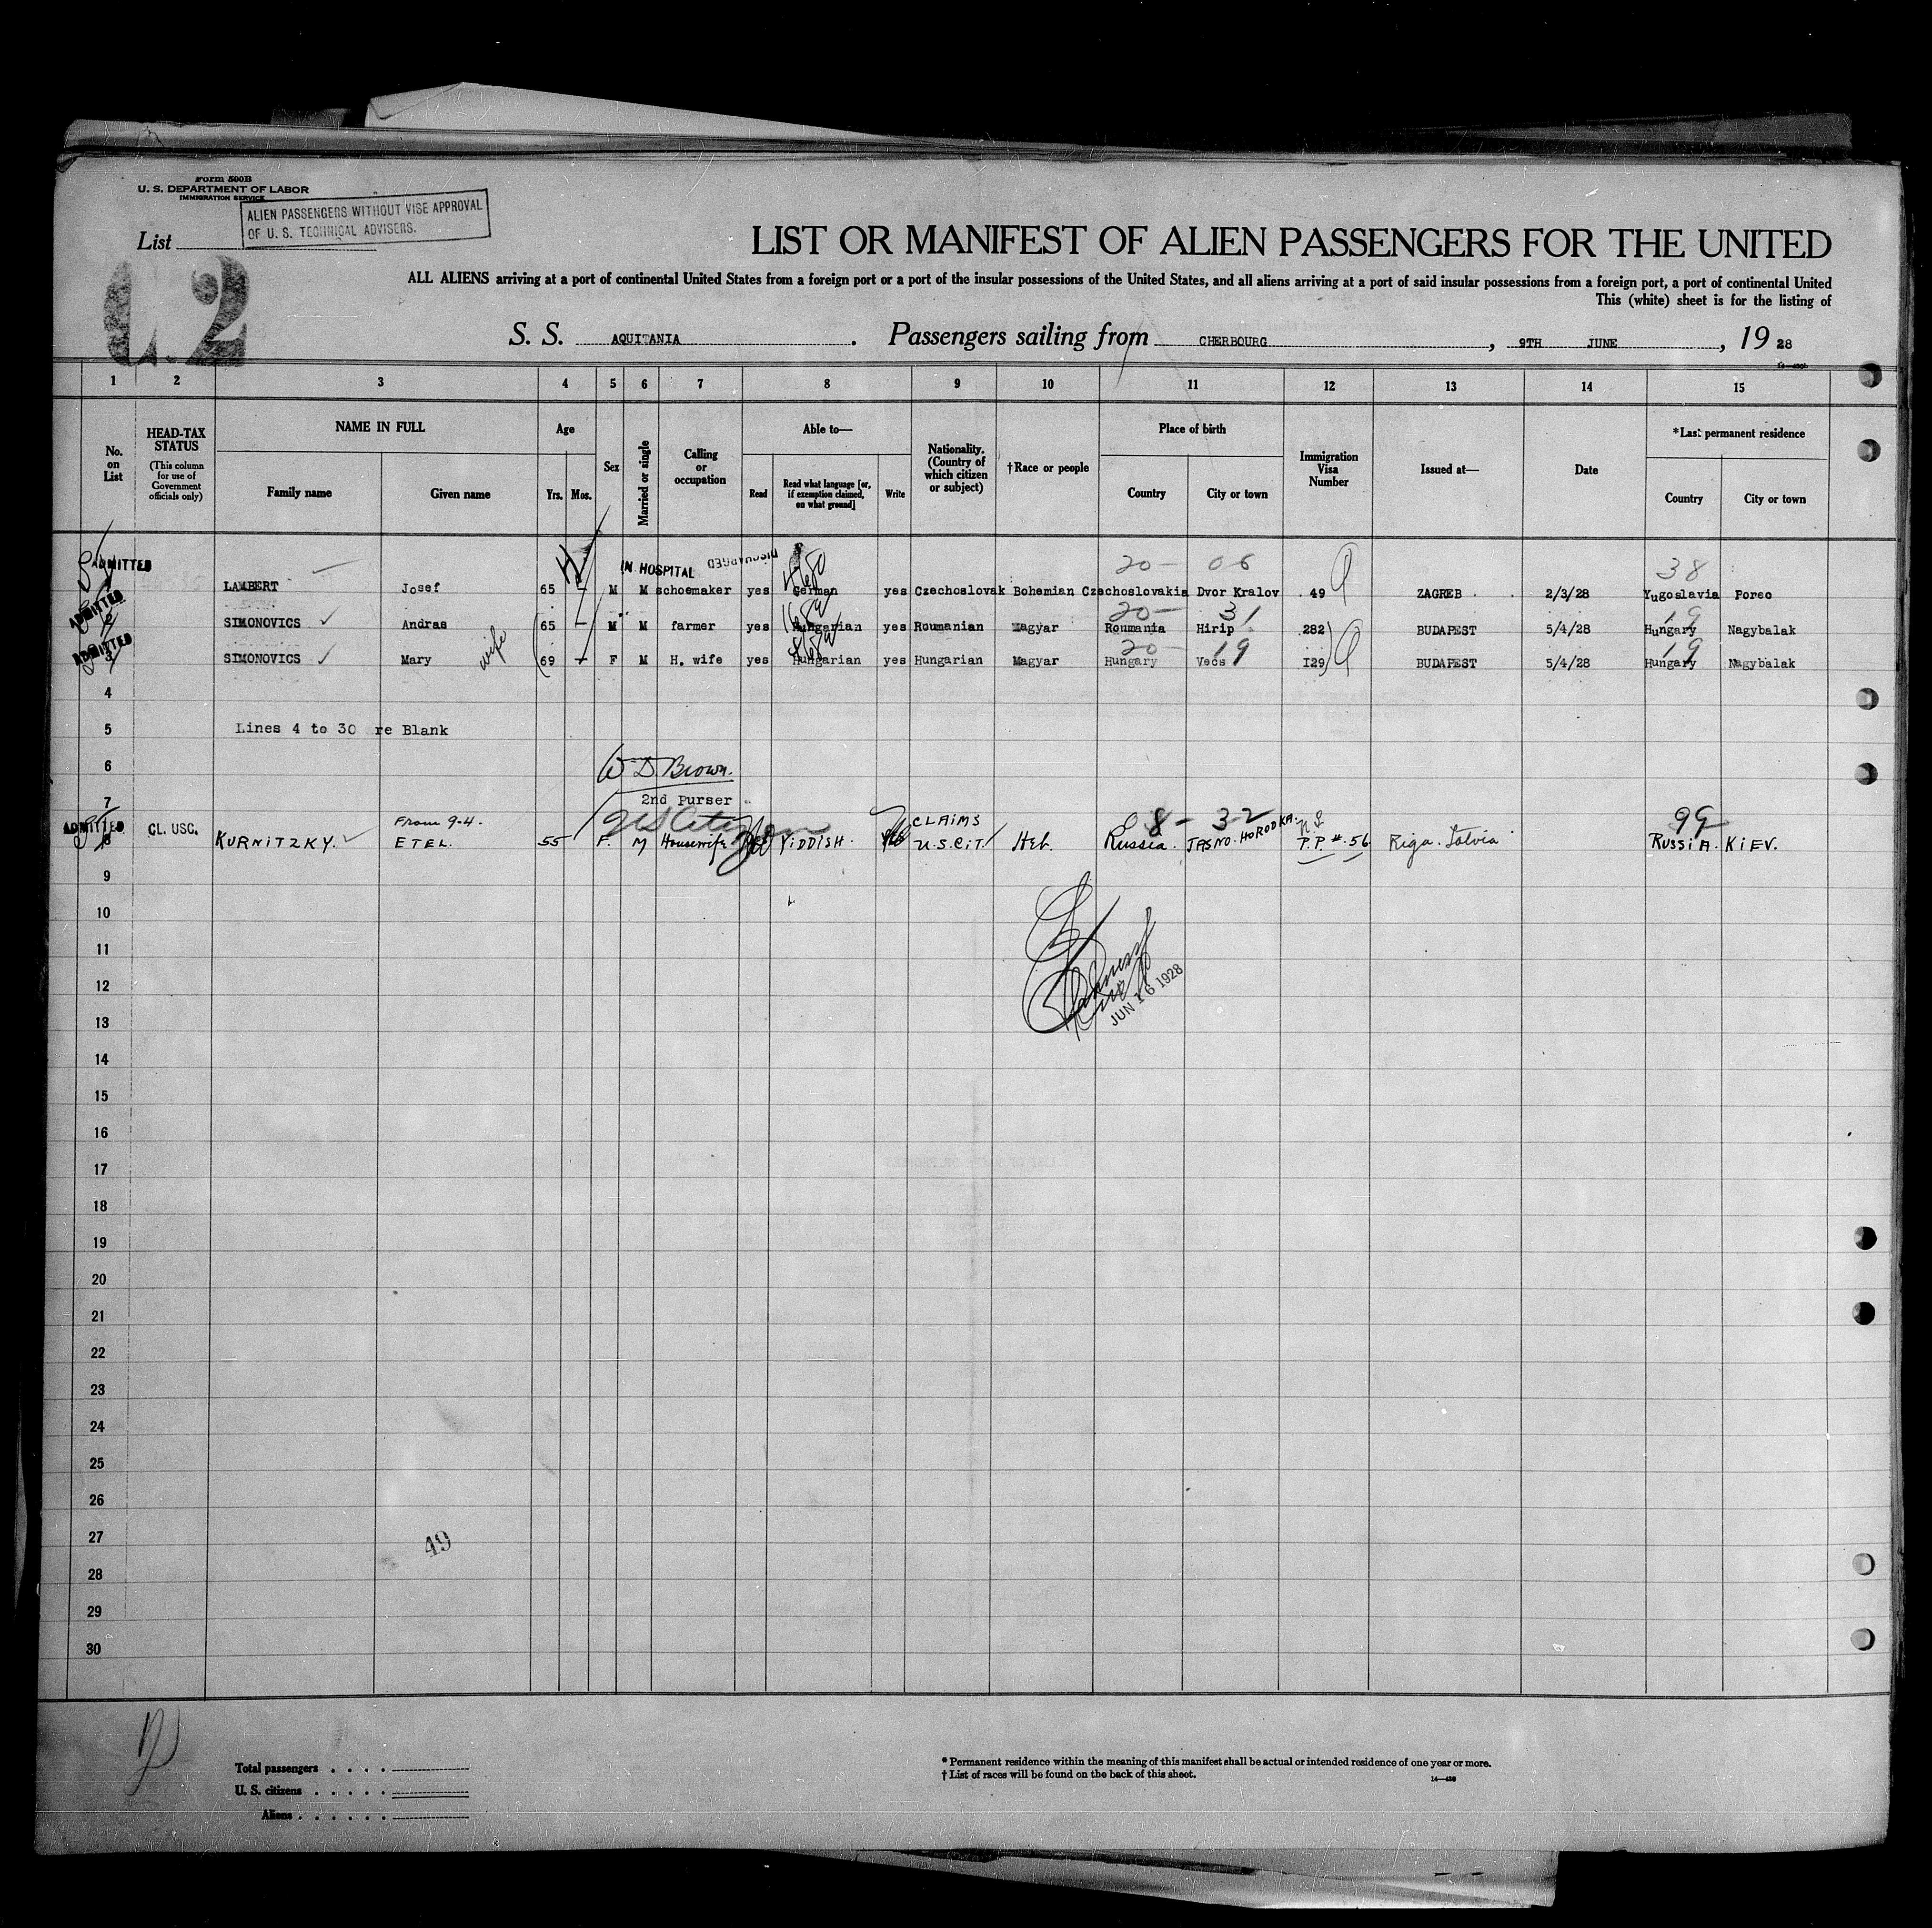 Form 500B
U. S. DEPARTMENT OF LABOR
IMMIGRATION SERVICE
ALIEN PASSENGERS WITHOUT VISE APPROVAL
OF U. S. TECHNICAL ADVISERS.
List
2
LIST OR MANIFEST OF ALIEN PASSENGERS FOR THE UNITED
ALL ALIENS arriving at a port of continental United States from a foreign port or a port of the insular possessions of the United States, and all aliens arriving at a port of said insular possessions from a foreign port, a port of continental United
This (white) sheet is for the listing of
S. S. AQUITANIA. Passengers sailing from CHERBOURG, 9TH JUNE, 19 28
1 2 3 4 5 6 7 8 9 10 11 12 13 14 15
No. on List
HEAD-TAX STATUS (This column for use of Government officials only)
NAME IN FULL
Family name Given name
Age
Yrs. Mos.
Sex
Married or single
Calling or occupation
Able to—
Read Read what language [or, if exemption claimed, on what ground] Write
Nationality. (Country of which citizen or subject)
†Race or people
Place of birth
Country City or town
Immigration Visa Number
Issued at—
Date
*Last permanent residence
Country City or town
IN HOSPITAL DISCHARGED
20- 06 38
ADMITTED LAMBERT Josef 65 - M M schoemaker yes German yes Czechoslovak Bohemian Czechoslovakia Dvor Kralov 49 ZAGREB 2/3/28 Yugoslavia Poreo
20- 31 19
ADMITTED 2 SIMONOVICS Andras 65 - M M farmer yes Hungarian yes Roumanian Magyar Roumania Hirip 282 BUDAPEST 5/4/28 Hungary Nagybalak
20- 19 19
ADMITTED 3 SIMONOVICS Mary wife 69 - F M H. wife yes Hungarian yes Hungarian Magyar Hungary Vecs 129 BUDAPEST 5/4/28 Hungary Nagybalak
4
5 Lines 4 to 30 re Blank
6 W D Brown.
7 2nd Purser
From 9-4. US Citizen CLAIMS 8-32 99
ADMITTED 8 CL. USC. KURNITZKY. ETEL. 55 F. M Housewife Yes YIDDISH. Yes U.S.CIT. Heb. Russia. JASNO-HORODKA. P.P.#.56 Riga. Latvia RUSSIA. KIEV.
9
10
11
12
JUN 16 1928
13
14
15
16
17
18
19
20
21
22
23
24
25
26
27
49
28
29
30
Total passengers . . . .
U. S. citizens . . . . .
Aliens . . . . . .
* Permanent residence within the meaning of this manifest shall be actual or intended residence of one year or more.
† List of races will be found on the back of this sheet.